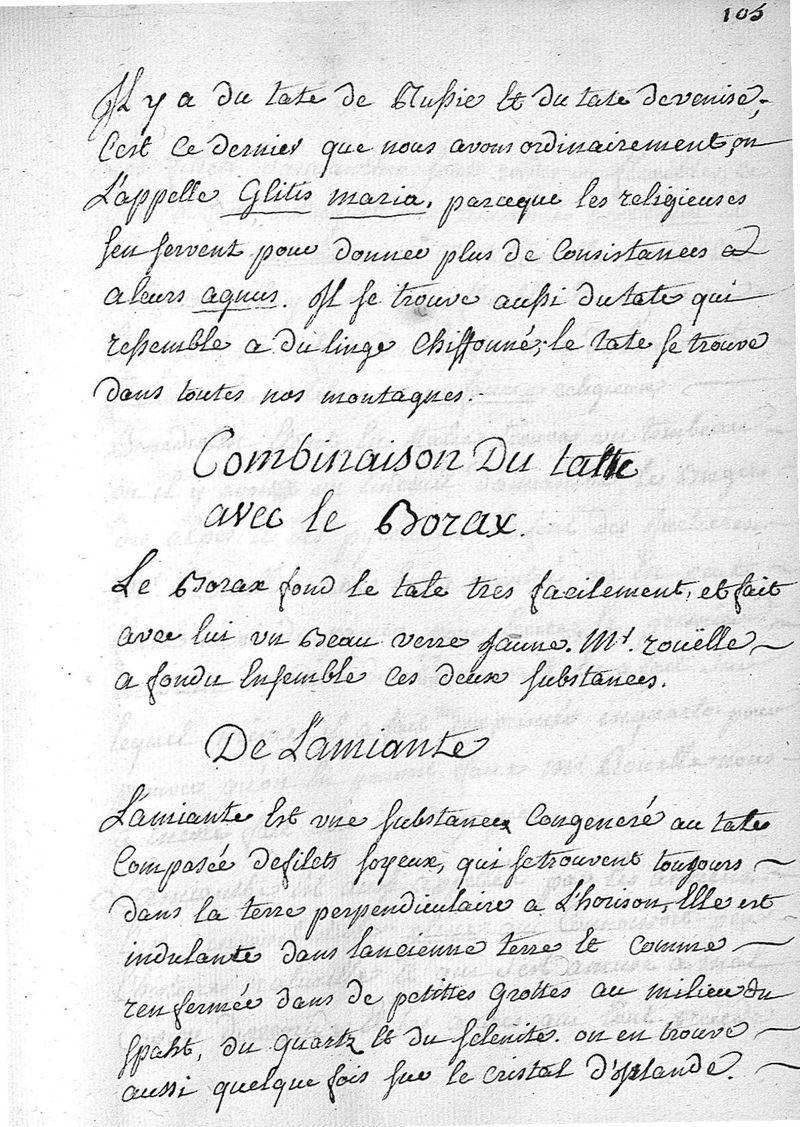 105
Il y a du talc de Russie Et du talc de venise,
C'est Ce dernier que nous avons ordinairement, on
L'appelle Glitis maria, parceque les religieuses
s'en servent pour donner plus de Consistances a
a leurs agnus. Il se trouve aussi du talc qui
ressemble a du linge Chiffonné, le talc se trouve
dans toutes nos montagnes.
Combinaison Du talc
avec le Borax.
Le Borax fond le talc tres facilement, et fait
avec lui un Beau verre Jaune. Mr. rouëlle
a fondu Ensemble ces deux substances.
De L'amiante
L'amiante Est une substance Congeneré au talc
Composée de filets soyeux, qui se trouvent toujours
dans la terre perpendiculaire a L'horison, Elle est
indulante dans l'ancienne terre Et comme
renfermée dans de petittes grottes au milieu du
spaht, du quartz Et du selenite. on en trouve
aussi quelque fois sur le cristal d'islande.